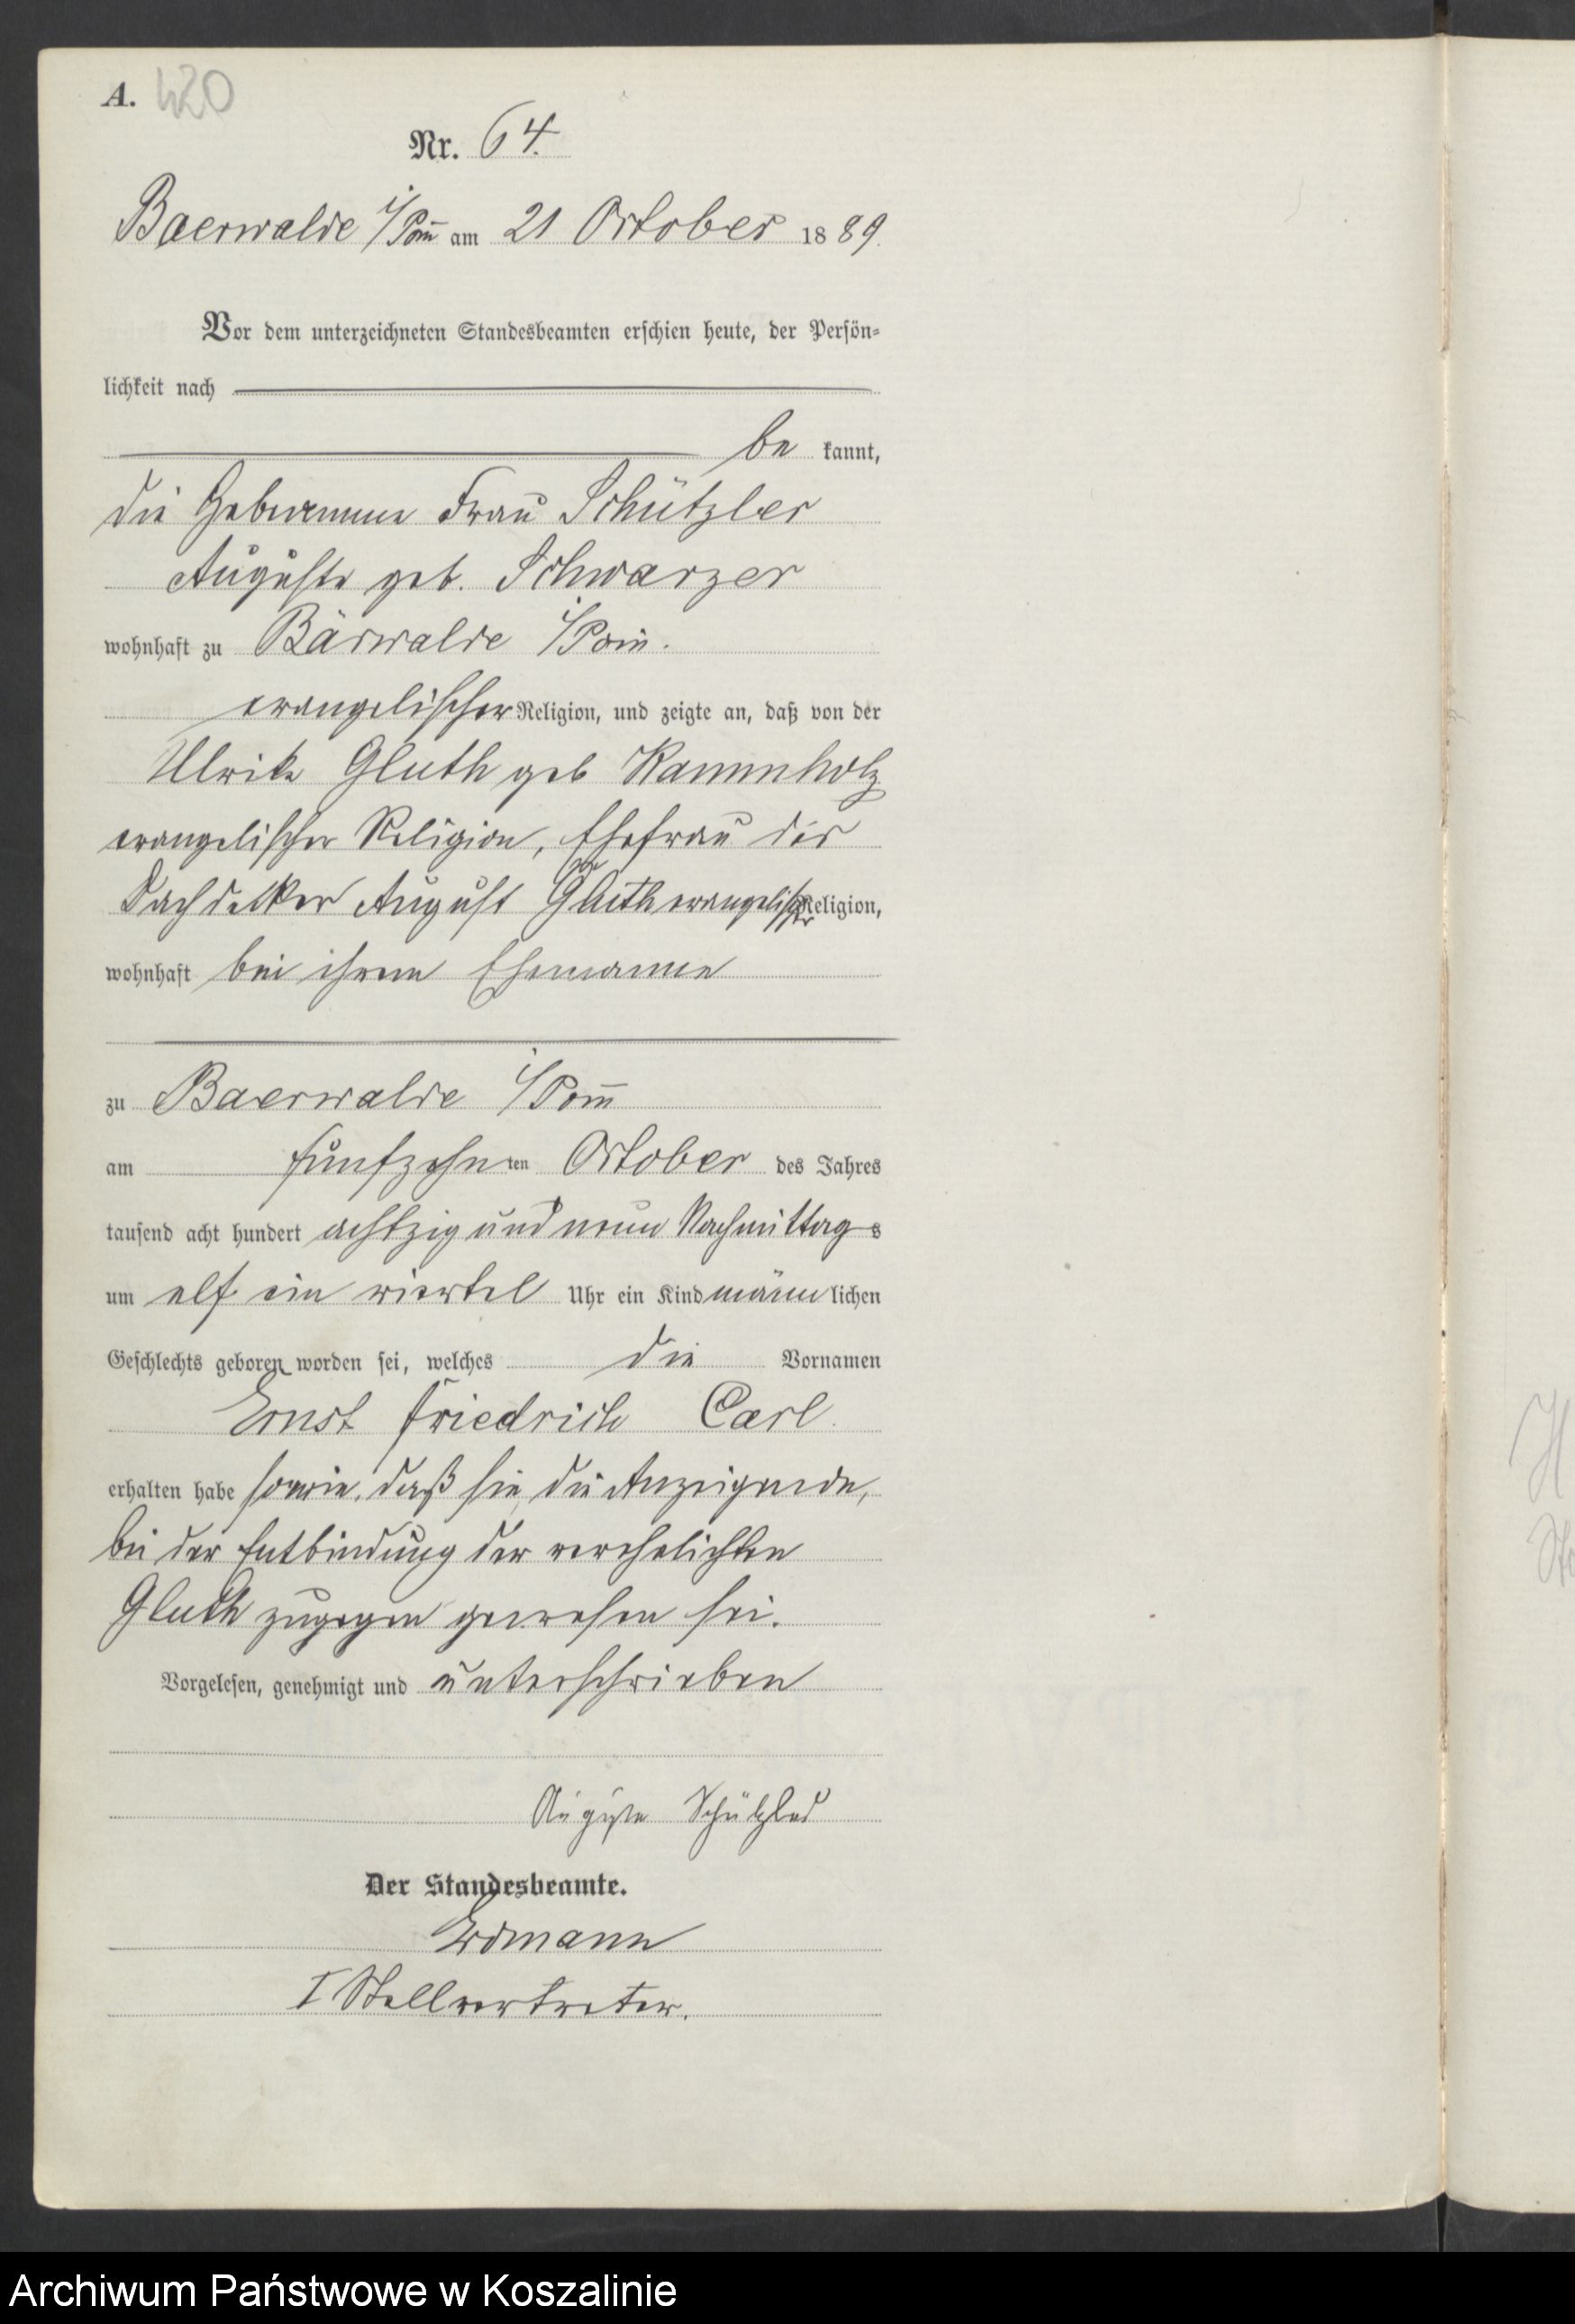 A. 420
Nr. 64.
Baerwalde i/Pom̄ am 21 October 1889.
Vor dem unterzeichneten Standesbeamten erschien heute, der Persön=
lichkeit nach
be kannt,
die Hebeamme Frau Schützler
Auguste geb. Schwarzer
wohnhaft zu Bärwalde i/Pom.
evangelischer Religion, und zeigte an, daß von der
Ulrike Gluth geb Rammholz
evangelischer Religion, Ehefrau des
Dachdecker August Gluth evangelischer Religion,
wohnhaft bei ihrem Ehemanne
zu Baerwalde i/Pom̄
am fünfzehnten October des Jahres
tausend acht hundert achtzig und neun Nachmittags
um elf ein viertel Uhr ein Kind männlichen
Geschlechts geboren worden sei, welches die Vornamen
Ernst Friedrich Carl
erhalten habe sowie, daß sie, die Anzeigende,
bei der Entbindung der verehelichten
Gluth zugegen gewesen sei.
Vorgelesen, genehmigt und unterschrieben
Auguste Schützler
Der Standesbeamte.
Erdmann
I Stellvertreter.
Archiwum Państwowe w Koszalinie